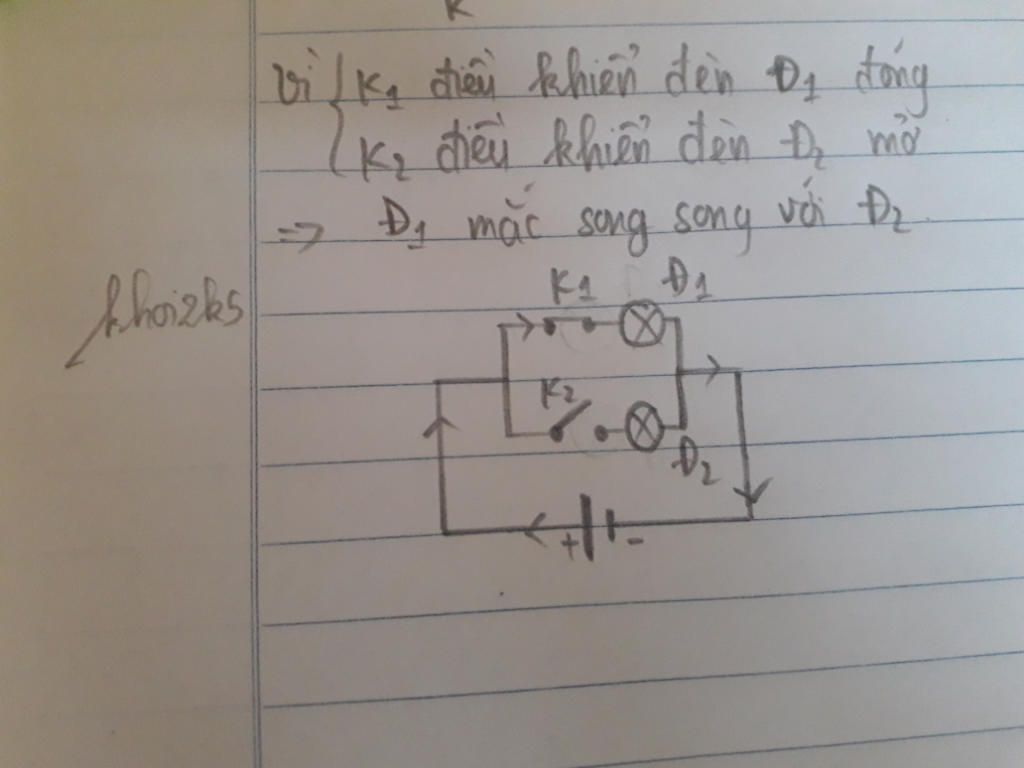 K
Vì { K1 điều khiển đèn Đ1 đóng
K2 điều khiển đèn Đ2 mở
=> Đ1 mắc song song với Đ2
khoi2k5
K1 Đ1
K2
Đ2
+ -